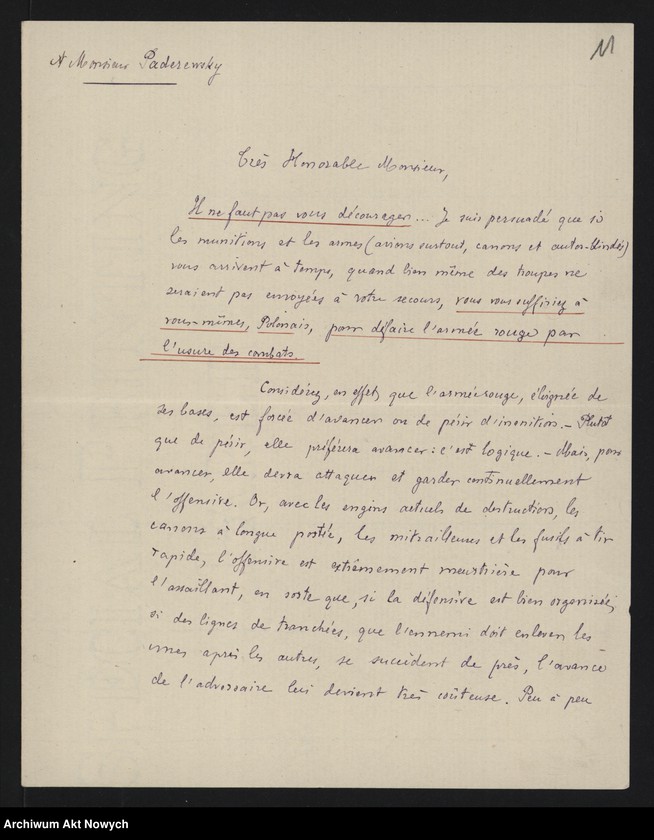 11
A Monsieur Paderewsky
Très Honorable Monsieur,
Il ne faut pas vous décourager... Je suis persuadé que si
les munitions et les armes (avions surtout, canons et autos-blindés)
vous arrivent à temps, quand bien même des troupes ne
seraient pas envoyées à votre secours, vous vous suffiriez à
vous-mêmes, Polonais, pour défaire l'armée rouge par
l'usure des combats.
Considérez, en effet, que l'armée rouge, éloignée de
ses bases, est forcée d'avancer ou de périr d'inanition. — Plutôt
que de périr, elle préférera avancer : c'est logique. — Mais, pour
avancer, elle devra attaquer et garder continuellement
l'offensive. Or, avec les engins actuels de destruction, les
canons à longue portée, les mitrailleuses et les fusils à tir
rapide, l'offensive est extrêmement meurtrière pour
l'assaillant, en sorte que, si la défensive est bien organisée,
si des lignes de tranchées, que l'ennemi doit enlever les
unes après les autres, se succèdent de près, l'avance
de l'adversaire lui devient très coûteuse. Peu à peu
Archiwum Akt Nowych